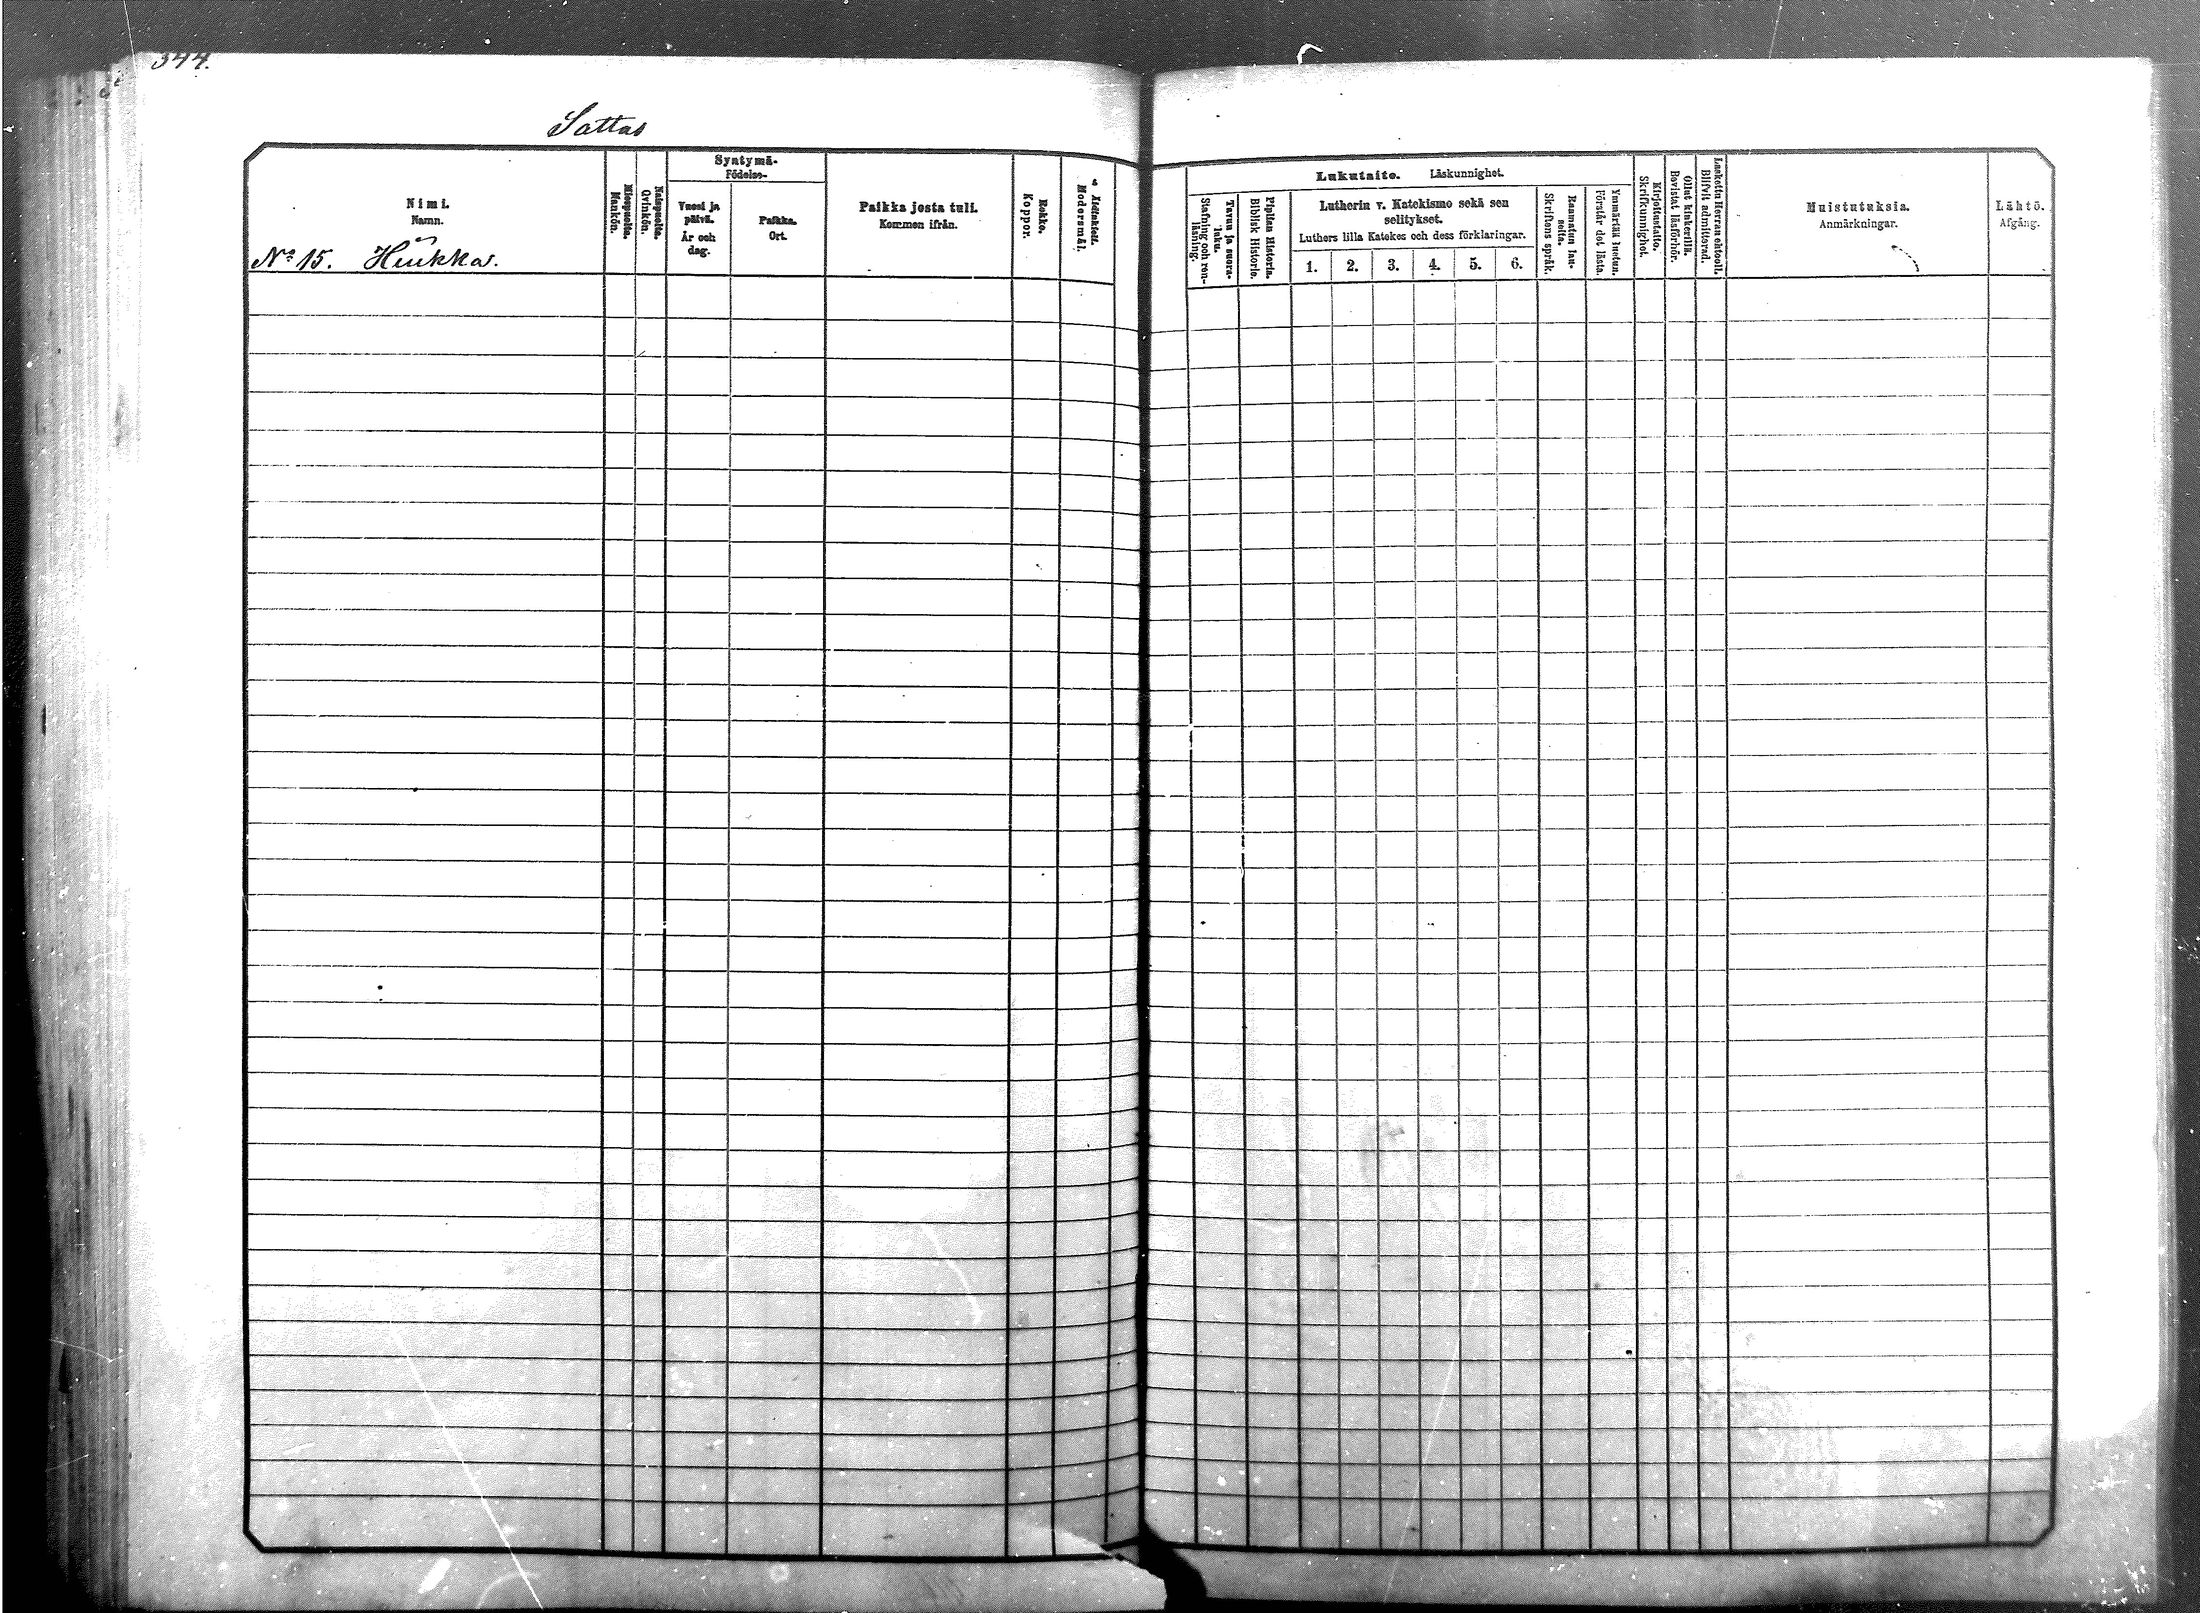 344.
Sattas
Nimi.
Namn.
No 15. Hiukka.
Miespuolia.
Mankön.
Naispuolia.
Qvinkön.
Syntymä-
Födelse-
Vuosi ja
päivä.
År och
dag.
Paikka.
Ort.
Paikka josta tuli.
Kommen ifrån.
Rokko.
Koppor.
Äidinkieli.
Modersmål.
Lukutaito. Läskunnighet.
Tavuu ja suora-
luku.
Stafning och ren-
läsning.
Piplian Historia.
Biblisk Historie.
Lutherin v. Katekismo sekä sen
selitykset.
Luthers lilla Katekes och dess förklaringar.
1. 2. 3. 4. 5. 6.
Raamatun lau-
seita.
Skriftens språk.
Ymmärtää luetun.
Förstår det lästa.
Kirjoitustaito.
Skrifkunnighet.
Ollut kinkerillä.
Bevistat läsförhör.
Laskettu Herran ehtooll.
Blifvit admitterad.
Muistutuksia.
Anmärkningar.
Lähtö.
Afgång.